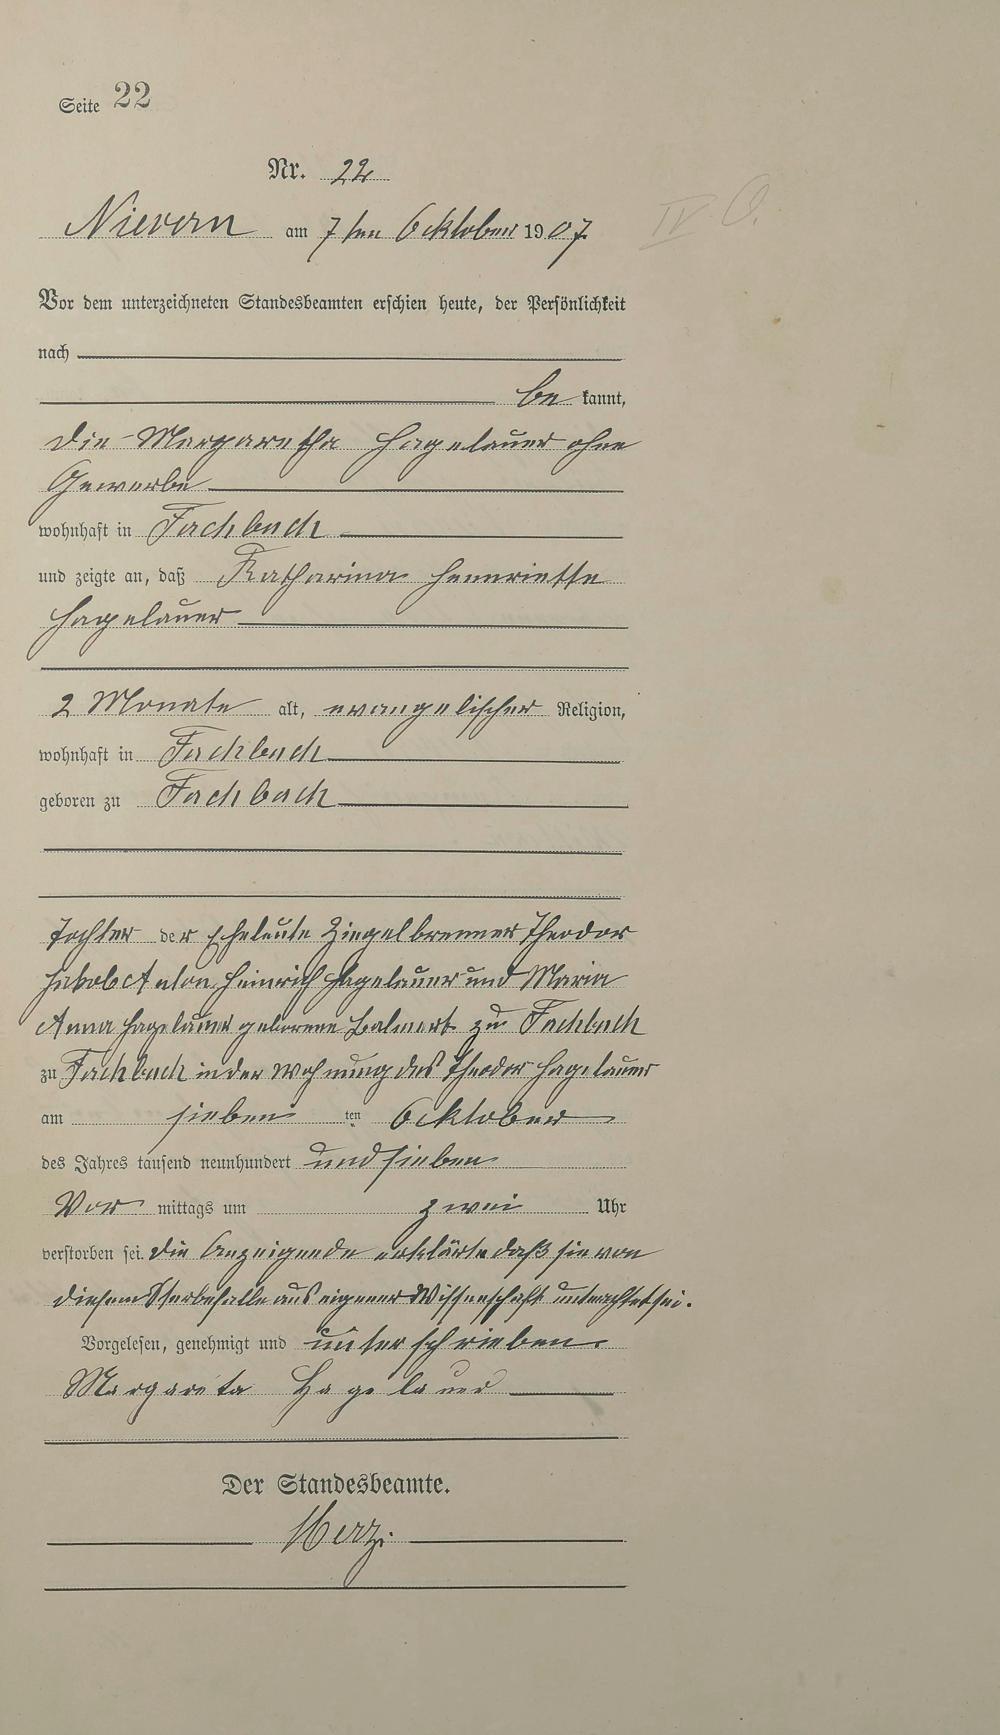 Seite 22
Nr. 22
IV O.
Nievern am 7ten Ocktober 1907.
Vor dem unterzeichneten Standesbeamten erschien heute, der Persönlichkeit
nach
be kannt,
die Margaretha Hagelauer ohne
Gewerbe
wohnhaft in Fachbach
und zeigte an, daß Katharina Hennriette
Hagelauer
2 Monate alt, evangelischer Religion,
wohnhaft in Fachbach
geboren zu Fachbach
Tochter der Eheleute Ziegelbrenner Theodor
Jakob Anton Heinrich Hagelauer und Maria
Anna Hagelauer geborene Balmert zu Fachbach
zu Fachbach in der Wohnung des Theodor Hagelauer
am sieben ten Ocktober
des Jahres tausend neunhundert und sieben
Vor mittags um zwei Uhr
verstorben sei. Die Anzeigende erklärte daß sie von
diesem Sterbefalle aus eigener Wissenschaft unterrichtet sei.
Vorgelesen, genehmigt und unterschrieben.
Margareta Hagelauer
Der Standesbeamte.